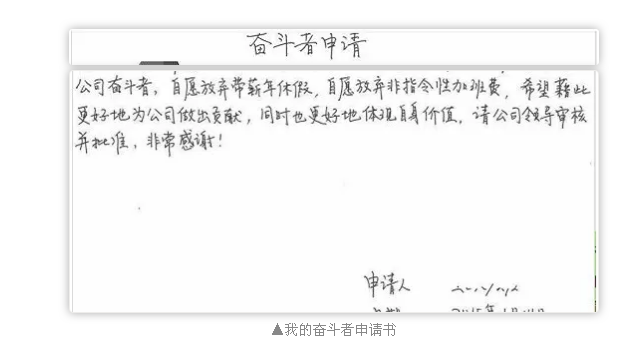 奋斗者申请
公司奋斗者，自愿放弃带薪年休假，自愿放弃非指令性加班费，希望藉此
更好地为公司做出贡献，同时也更好地体现自身价值，请公司领导审核
并批准，非常感谢！
申请人
▲我的奋斗者申请书